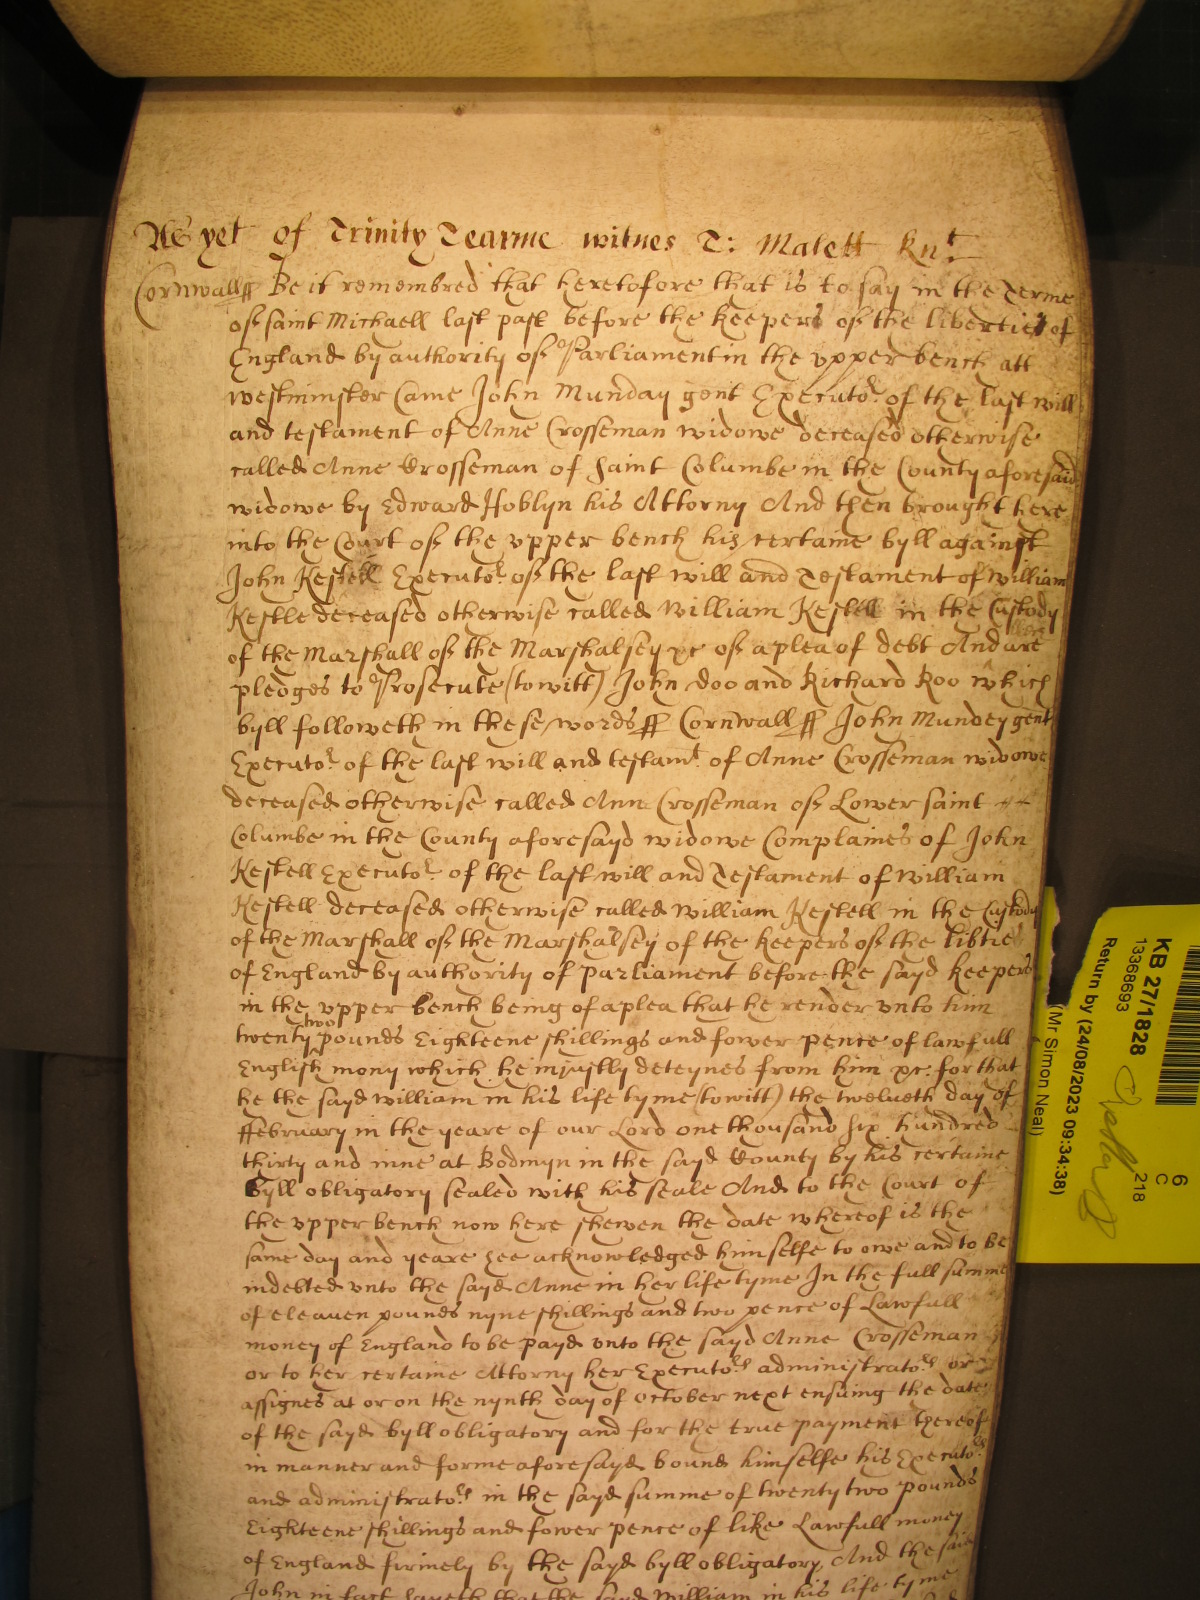 As yet of Trinity Tearme witnes T: Malett Knt
Cornwall ff Be it remembred that heretofore that is to say in the Terme
of saint Michaell last past before the keepers of the liberties of
England by authority of Parliament in the vpper bench att
westminster Came John Munday gent Executor of the last will
and testament of Anne Crosseman widowe deceased otherwise
called Anne Crosseman of Saint Columbe in the County aforesaid
widowe by Edward Hoblyn his Attorny And then brought here
into the Court of the vpper bench his certaine byll against
John Kestell Executor of the last will and Testament of William
Kestle deceased otherwise called William Kestell in the Custody
of the Marshall of the Marshalsey xc of a plea of debt And are
pledges to Prosecute (to witt) John doo and Richard Roo which
byll followeth in these words ff Cornwall ff John Mundey gent
Executor of the last will and testamt of Anne Crosseman widowe
deceased otherwise called Ann Crosseman of Lower saint
Columbe in the County aforesayd widowe Complaines of John
Kestell Executor of the last will and Testament of William
Kestell deceased otherwise called William Kestell in the Custody
of the Marshall of the Marshalsey of the keepers of the libties
of England by authority of parliament before the sayd keepers
in the vpper bench being of a plea that he render vnto him
twenty two pounds Eighteene shillings and fower pence of lawfull
English mony which he iniustly deteynes from him xc. for that
he the sayd William in his life tyme (to witt) the twelueth day of
ffebruary in the yeare of our Lord one thousand six hundred
thirty and nine at Bodmyn in the sayd County by his certaine
Byll obligatory sealed with his seale And to the Court of
the vpper bench now here shewen the date whereof is the
same day and yeare hee acknowledged himselfe to owe and to be
indebted vnto the sayd Anne in her life tyme In the full summe
of eleauen pounds nyne shillings and two pence of Lawfull
money of England to be payd vnto the sayd Anne Crosseman
or to her certaine Attorny her Executors administrators or
assignes at or on the nynth day of October next ensuing the date
of the sayd byll obligatory and for the true payment thereof
in manner and forme aforesayd bound himselfe his Executors
and administrators in the sayd summe of twenty two pounds
Eighteene shillings and fower pence of like Lawfull money
of England firmely by the sayd byll obligatory, And the said
John in fact sayeth that the sayd William in his life tyme
KB 27/1828
13368693
Return by (24/08/2023 09:34:38)
(Mr Simon Neal)
6
C
218